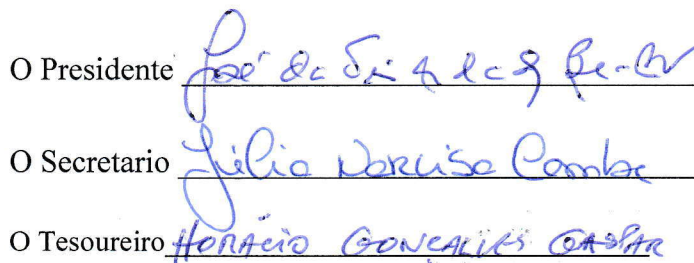 O Presidente José da
O Secretario Júlio Narciso
O Tesoureiro HORÁCIO GONÇALVES GASPAR